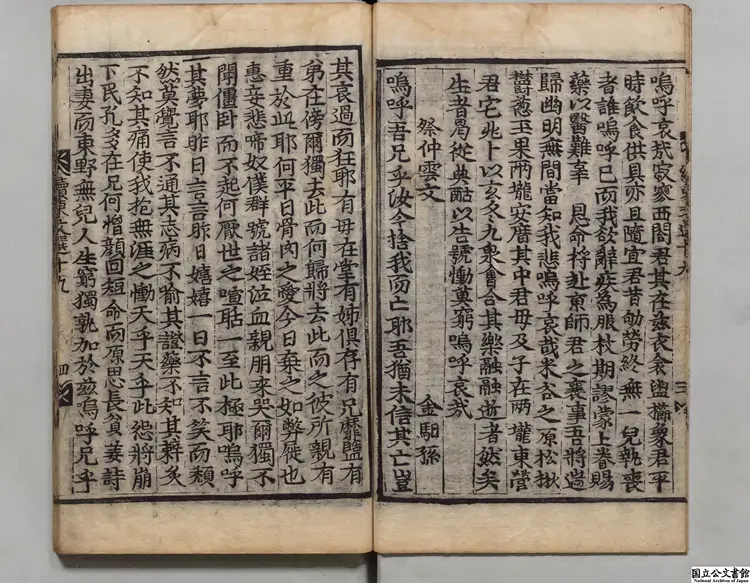 嗚呼哀哉寂寥西閤君其在玆衣衾盥櫛象君平
時飮食供具亦且隨宜君昔劬勞終無一兒執喪
者誰嗚呼已而我欲辭疾爲服杖期謬蒙上眷賜
藥以醫難辜 恩命將赴東師君之襄事吾將過
歸幽明無間當知我悲嗚呼哀哉米谷之原松楸
鬱葱玉果兩壠安厝其中君母及子在兩壠東營
君宅兆卜以亥冬九泉會合其樂融融逝者然矣
生者曷從奠酤以告號慟莫窮嗚呼哀哉
祭仲雲文
金馹孫
嗚呼吾兄乎汝今捨我而亡耶吾猶未信其亡豈
其哀過而狂耶有母在堂有姊俱存有兄靡盬有
弟在傍爾獨去此而何歸將去此而之彼所親有
重於此耶何平日骨肉之愛今日棄之如弊屣也
惠妾悲啼奴僕群號諸姪泣血親朋來哭爾獨不
聞僵卧而不起何厭世之喧聒一至此極耶嗚呼
其夢耶昨日言言昨日嬉嬉一日不言不笑而頹
然莫覺言不通其志病不喻其證藥不知其辢灸
不知其痛使我抱無涯之慟天乎天乎此怨將崩
下民孔多在兄何憎顔回短命而原思長貧姜詩
出妻而東野無兒人生窮獨孰加於玆嗚呼兄乎
續東文選十九
四
國立公文書館
National Archives of Japan